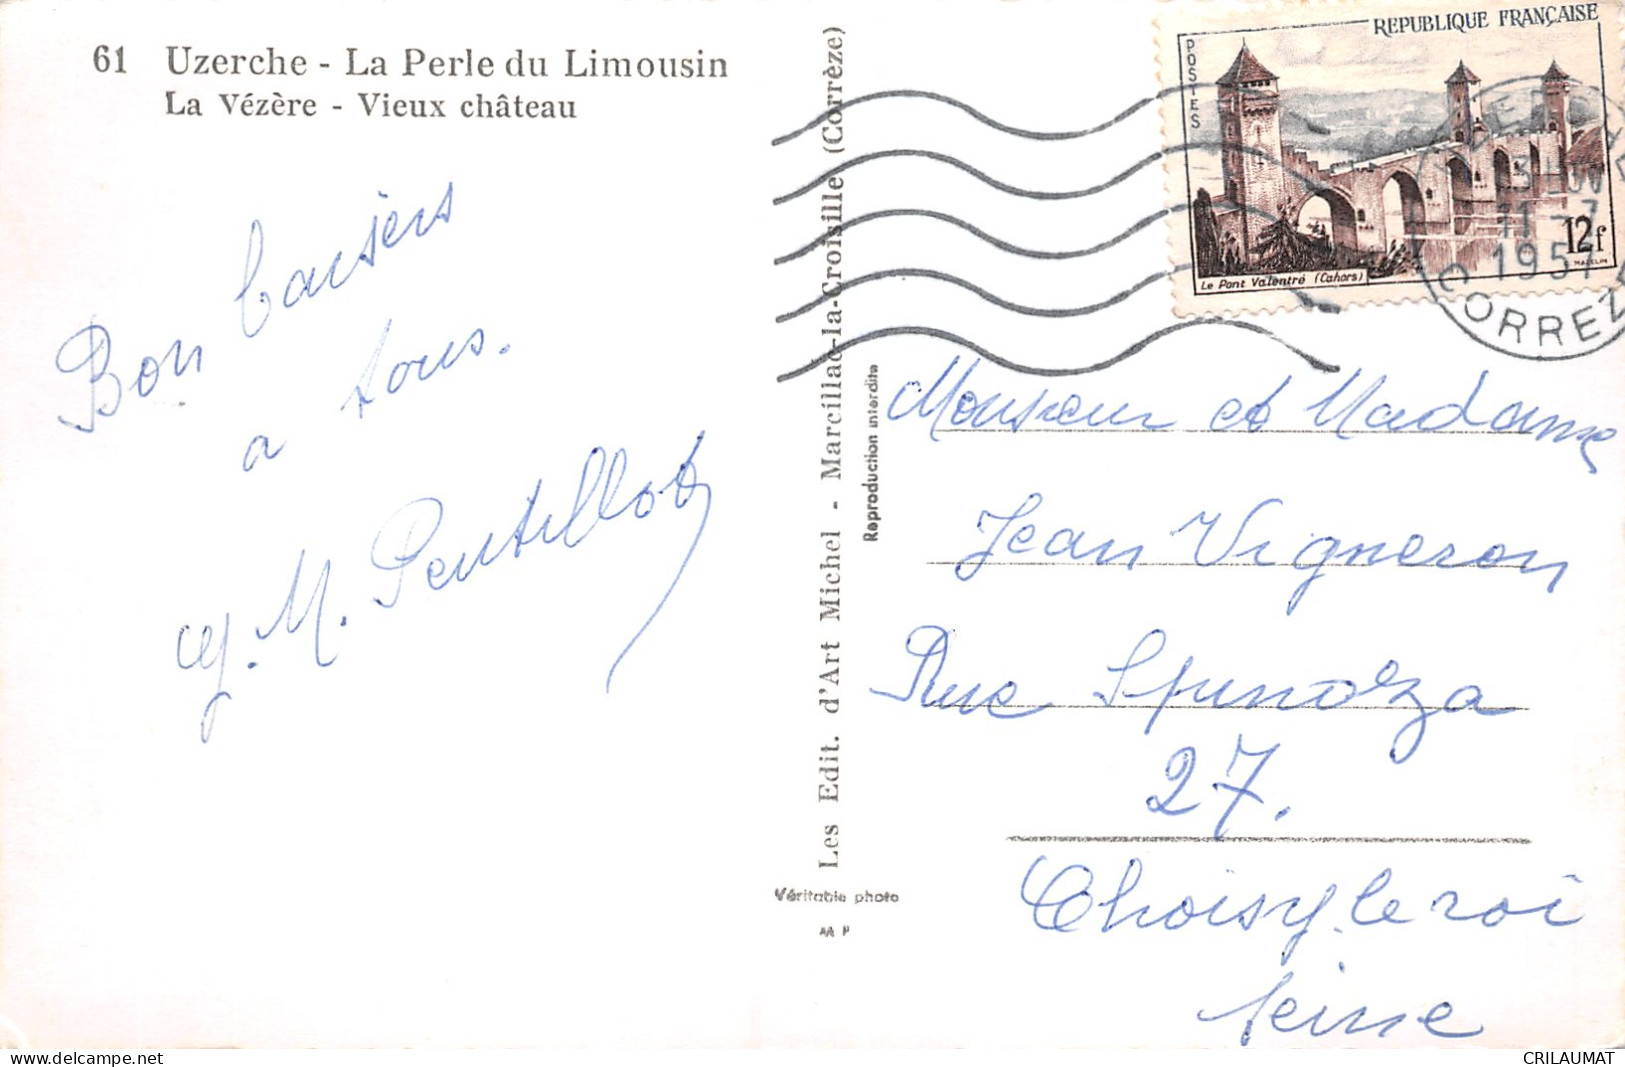 61 Uzerche - La Perle du Limousin
La Vézère - Vieux château
Bon baisers
a tous.
M. Pentillot
Les Edit. d'Art Michel - Marcillac-la-Croisille (Corrèze)
Reproduction interdite
Véritable photo
REPUBLIQUE FRANÇAISE
POSTES
12f
Le Pont Valentré (Cahors)
MAZELIN
11 -7
1957
CORREZE
Monsieur et Madame
Jean Vigneron
Rue Spinoza
27.
Choisy le roi
Seine
CRILAUMAT